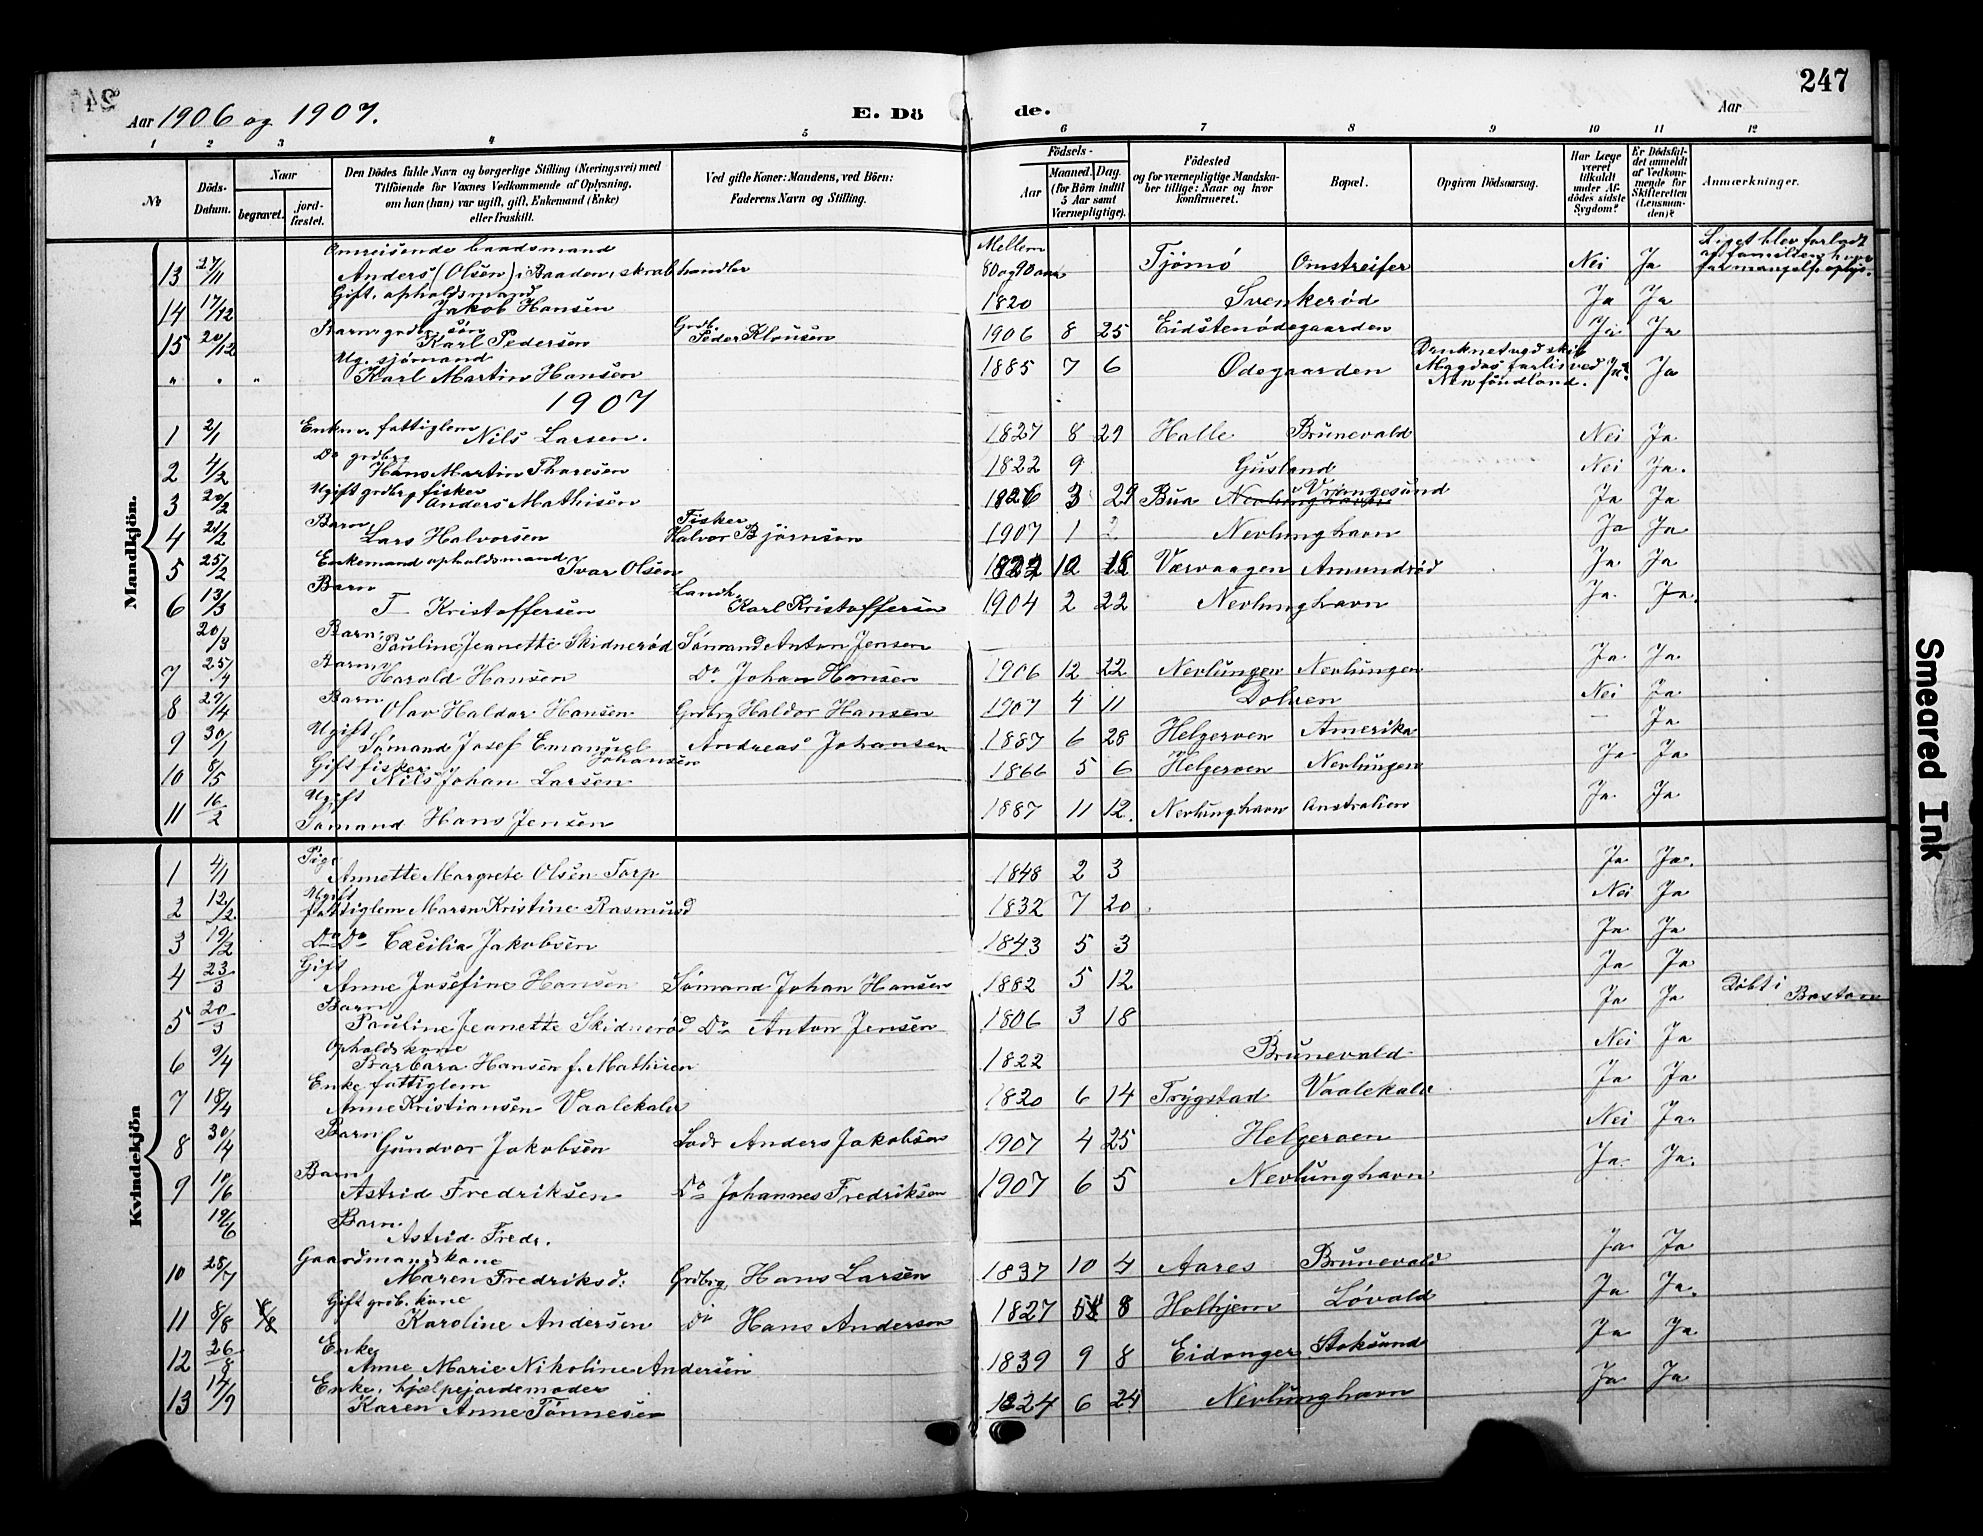 247
Aar 1906 og 1907.
E. Döde.
Aar
1 2 3 4 5 6 7 8 9 10 11 12
No
Döds-Datum.
Naar
begravet.
jord-fæstet.
Den Dödes fulde Navn og borgerlige Stilling (Næringsvei) med Tilföiende for Voxnes Vedkommende af Oplysning, om han (hun) var ugift, gift, Enkemand (Enke) eller fraskilt.
Ved gifte Koner: Mandens, ved Börn: Faderens Navn og Stilling.
Födsels-
Aar
Maaned. Dag. (for Börn indtil 5 Aar samt Værnepligtige).
Födested og for værnepligtige Mandskaber tillige: Naar og hvor konfirmeret.
Bopæl.
Opgiven Dödsaarsag.
Har Læge været tilkaldt under Afdödes sidste Sygdom?
Er Dödsfaldet anmeldt af Vedkommende for Skifteretten (Lensmanden)?
Anmærkninger.
Mandkjön.
13 27/11 Omreisende baadsmand Anders (Olsen) i Baaden, skrabhandler Mellem 80 og 90 aar Tjømø Omstreifer Nei Ja Liget blev forladt af familien
14 17/12 Gift, opholdsmand Jakob Hansen 1820 Svenkerød Ja Ja
15 20/12 Barn, grdbr. søn Karl Pedersen Grdb. Peder Klausen 1906 8 25 Eidstenødegaarden Ja Ja
" " " Ug. sjømand Karl Martin Hansen 1885 7 6 Ødegaarden Druknet ved skib Magdas forlis ved Newfoundland. Ja Ja
1907
1 2/1 Enkem. fattiglem Nils Larsen. 1827 8 29 Halle Brunevald Nei Ja
2 4/2 Do grdbrg Hans Martin Thoresen 1822 9 Gusland Nei Ja.
3 20/2 Ugift grdbrg. fisker Anders Mathisen 1826 3 29 Bua Nevlunghavn Vrangesund Ja Ja
4 21/2 Barn Lars Halvorsen Fisker Halvor Bjørnson 1907 1 2 Nevlunghavn Ja Ja
5 25/2 Enkemand opholdsmand Ivar Olsen 1822 12 18 Værvaagen Amundrød Ja Ja
6 13/3 Barn T Kristoffersen Landh. Karl Kristoffersen 1904 2 22 Nevlunghavn Ja Ja.
20/3 Barn, Pauline Jeanette Skidnerød Sømand Anton Jensen
7 25/4 Barn Harald Hansen Do. Johan Hansen 1906 12 22 Nevlungen Nevlungen Ja Ja
8 29/4 Barn Olav Haldor Hansen Grdbrg Haldor Hansen 1907 4 11 Dolven Nei Ja
9 30/1 Ugift Sømand Josef Emanuel Johansen Andreas Johansen 1887 6 28 Helgeroen Amerika — Ja
10 8/5 Gift fisker Nils Johan Larsen 1866 5 6 Helgeroen Nevlungen Ja Ja
11 16/2 Ugift Sømand Hans Jensen 1887 11 12. Nevlunghavn Australien Ja Ja
Kvindekjön
1 4/1 Pige Annette Margrete Olsen Torp 1848 2 3 Ja Ja.
2 12/2 Ugift fattiglem Maren Kristine Rasmusd 1832 7 20 Nei Ja
3 19/2 Do Do Cæcilia Jakobsen 1843 5 3 Ja Ja
4 23/3 Gift Anne Josefine Hansen Sømand Johan Hansen 1882 5 12 Ja Ja
5 20/3 Barn Pauline Jeanette Skidnerød Do Anton Jensen 1806 3 18 Ja Ja Døbt i Boston
6 9/4 Opholdskone Barbara Hansen f. Mathisen 1822 Brunevald Nei Ja
7 18/4 Enke fattiglem Anne Kristiansen Vaalekald 1820 6 14 Trygstad Vaalekald Ja Ja
8 30/4 Barn Gundvor Jakobsen Lods Anders Jakobsen 1907 4 25 Helgeroen Nei Ja.
9 10/6 Barn Astrid Fredriksen Do Johannes Fredriksen 1907 6 5 Nevlunghavn Ja Ja.
19/6 Barn Astrid Fredr.
10 28/7 Gaardmandskone Maren Fredriksd: Grdbrg, Hans Larsen 1837 10 4 Aares Brunevald Ja Ja
11 8/8 8/8 Gift grdb. kone Karoline Andersen do Hans Anderson 1827 8 Holhjem Løvald Ja Ja.
12 26/8 Enke Anne Marie Nikoline Andersen 1839 9 8 Eidanger Stoksund Ja Ja
13 17/9 Enke, hjælpejordemoder Karen Anne Tønnesen 1824 6 24 Nevlunghavn Ja Ja
Smeared Ink